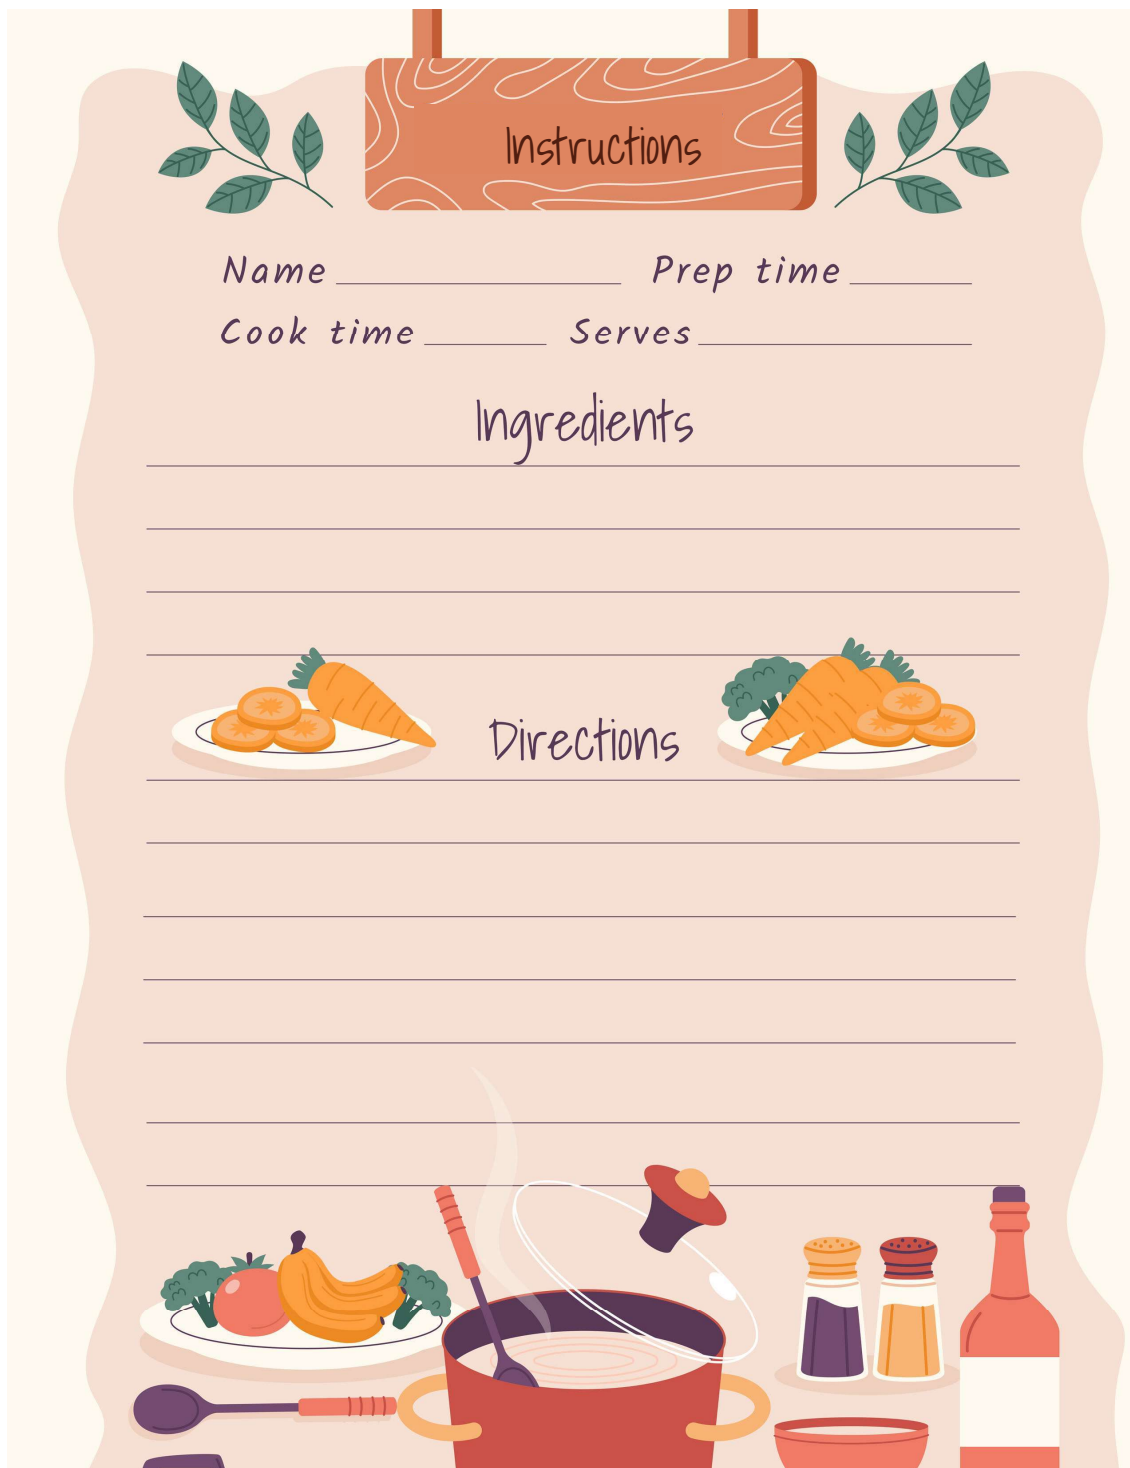 Instructions
Name Prep time
Cook time Serves
Ingredients
Directions